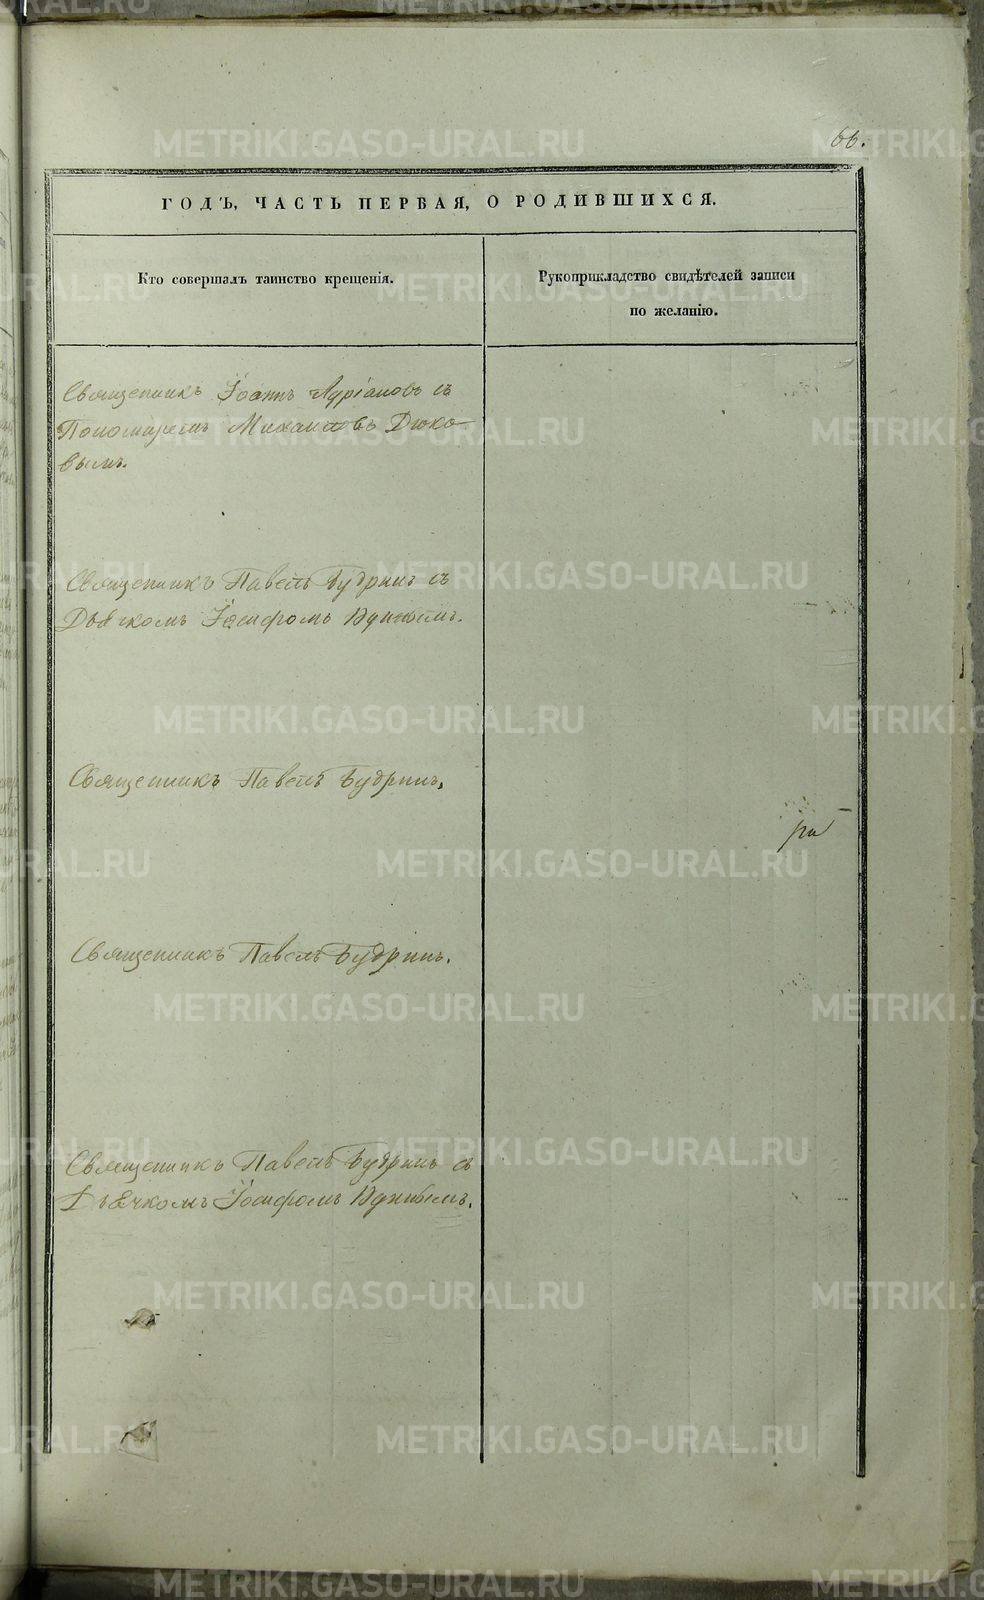 66.
ГОДЪ, ЧАСТЬ ПЕРВАЯ, О РОДИВШИХСЯ.
Кто совершалъ таинство крещенія.
Рукоприкладство свидѣтелей записи
по желанію.
Священникъ Іоаннъ Адріановъ съ
Пономаремъ Михаиловъ Дюко-
вымъ.
Священникъ Павелъ Будринъ съ
Дьячкомъ Іосифомъ
Священникъ Павелъ Будринъ.
Священникъ Павелъ Будринъ.
Священникъ Павелъ Будринъ съ
Дьячкомъ Іосифомъ
METRIKI.GASO-URAL.RU